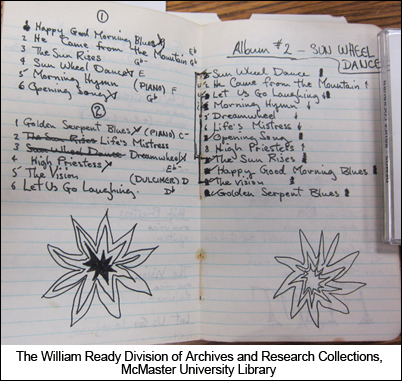 ①
1 Happy Good Morning Blues Eb
2 He Came from the Mountain Eb
3 The Sun Rises Gb
4 Sun Wheel Dance E
5 Morning Hymn (PIANO) F
6 Opening Song Gb
②
1 Golden Serpent Blues (PIANO) C-
2 The Sun Rises Life's Mistress
3 Sun Wheel Dance Dreamwheel Eb-
4 High Priestess
5 The Vision (DULCIMER) D
6 Let Us Go Laughing. Db
Album #2 - SUN WHEEL DANCE
Sun Wheel Dance
He Came from the Mountain
Let Us Go Laughing
Morning Hymn
Dreamwheel
Life's Mistress
Opening Song
High Priestess
The Sun Rises
Happy Good Morning Blues
The Vision
Golden Serpent Blues
The William Ready Division of Archives and Research Collections,
McMaster University Library